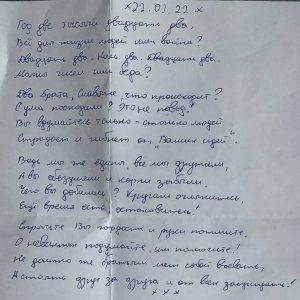 ×22.03.22×
Год две тысячи двадцать два.
Всё для жизни людей или война?
Двадцать два. Нам два. Двадцать два.
Магия чисел или беда?
Два брата, Славяне, что происходит?
С ума посходили? Это не повод!
Вы вдумайтесь только - столько людей
Страдает и гибнет от "Ваших идей".
Ведь мы же едины, все мы дружили,
А вы обезумели и корни забыли.
Чего вы добились? Кругом оглянитесь,
Ещё время есть, остановитесь!
Спрячьте Вы гордость и руки пожмите.
О невинных подумайте, им помогите!
Не должно же братьям меж собой воевать,
А стоять друг за друга и от всех защищать!
×××